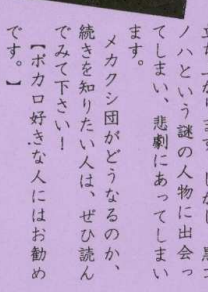 立ち上がります。しかし、黒コ
ノハという謎の人物に出会っ
てしまい、悲劇にあってしまい
ます。
メカクシ団がどうなるのか、
続きを知りたい人は、ぜひ読ん
でみて下さい！
【ボカロ好きな人にはお勧め
です。】